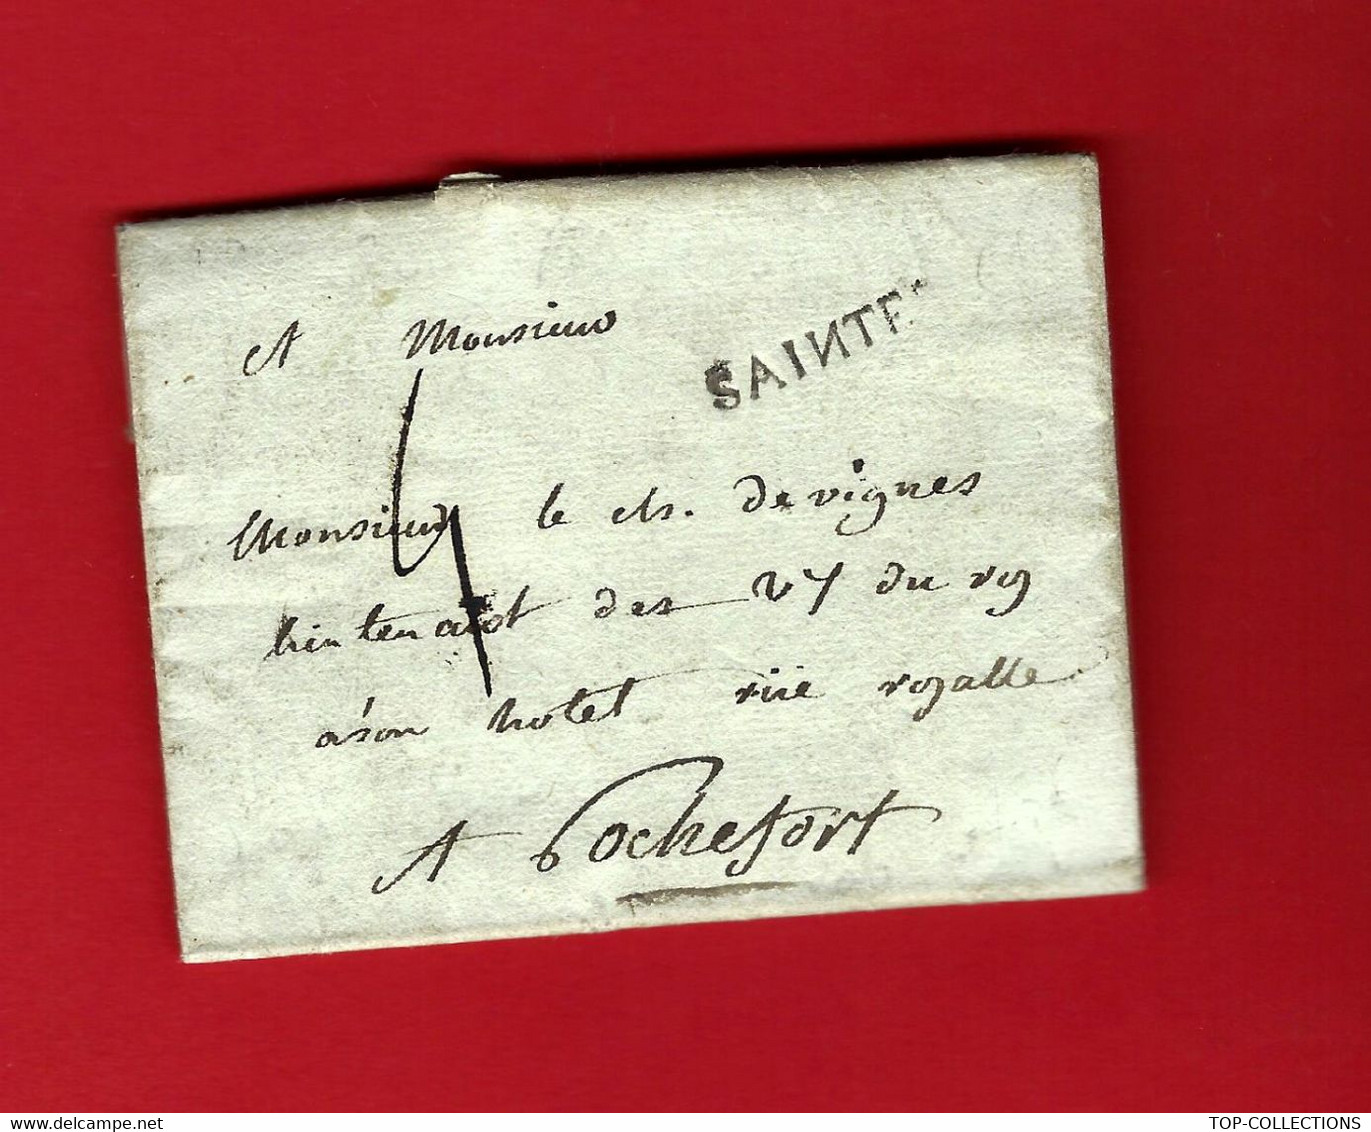 A Monsieur
SAINTES
Monsieur le ch. de vignes
lieutenant des v{x du roy
a son hotel rüe royalle
A Rochefort
www.delcampe.net
TOP-COLLECTIONS